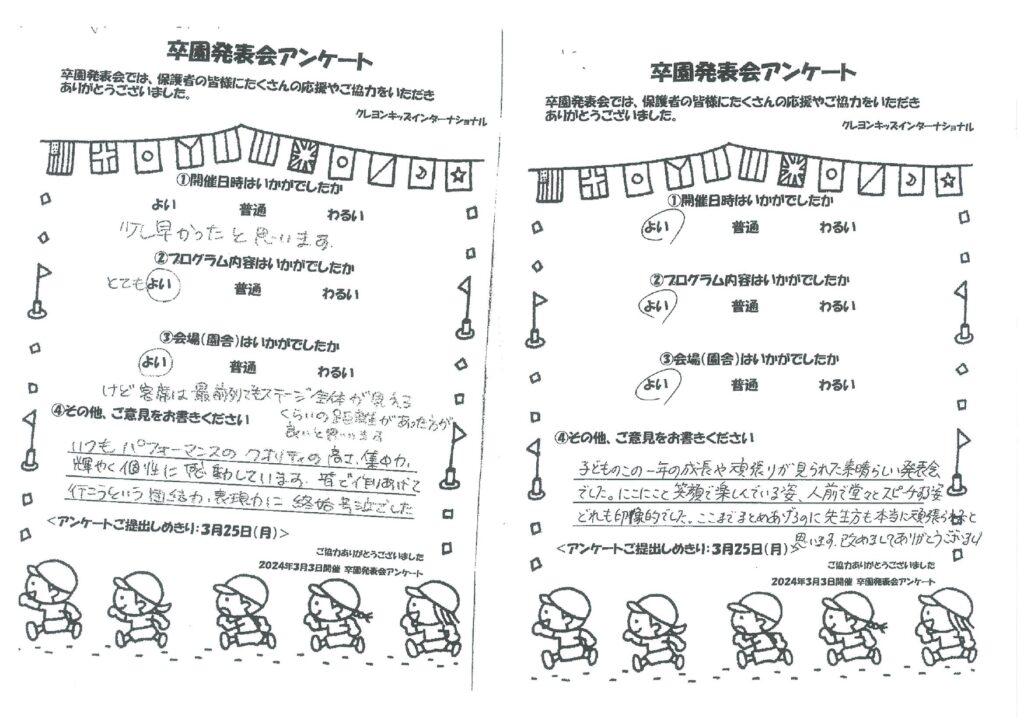 卒園発表会アンケート
卒園発表会では、保護者の皆様にたくさんの応援やご協力をいただき
ありがとうございました。
クレヨンキッズインターナショナル
①開催日時はいかがでしたか
よい 普通 わるい
少し早かったと思います。
②プログラム内容はいかがでしたか
とても よい 普通 わるい
③会場(園舎)はいかがでしたか
よい 普通 わるい
けど客席は最前列でもステージ全体が見える
くらいの距離があった方が
良いと思います
④その他、ご意見をお書きください
いつもパフォーマンスのクオリティの高さ、集中力、
輝やく個性に感動しています。皆で作りあげて
行こうという団結力、表現力に終始号泣でした
<アンケートご提出しめきり:3月25日(月)>
ご協力ありがとうございました
2024年3月3日開催 卒園発表会アンケート
卒園発表会アンケート
卒園発表会では、保護者の皆様にたくさんの応援やご協力をいただき
ありがとうございました。
クレヨンキッズインターナショナル
①開催日時はいかがでしたか
よい 普通 わるい
②プログラム内容はいかがでしたか
よい 普通 わるい
③会場(園舎)はいかがでしたか
よい 普通 わるい
④その他、ご意見をお書きください
子どものこの一年の成長や頑張りが見られた素晴らしい発表会
でした。にこにこと笑顔で楽しんでいる姿、人前で堂々とスピーチする姿
どれも印象的でした。ここまでまとめあげるのに先生方も本当に頑張られたと
思います。改めましてありがとうございました
<アンケートご提出しめきり:3月25日(月)>
ご協力ありがとうございました
2024年3月3日開催 卒園発表会アンケート